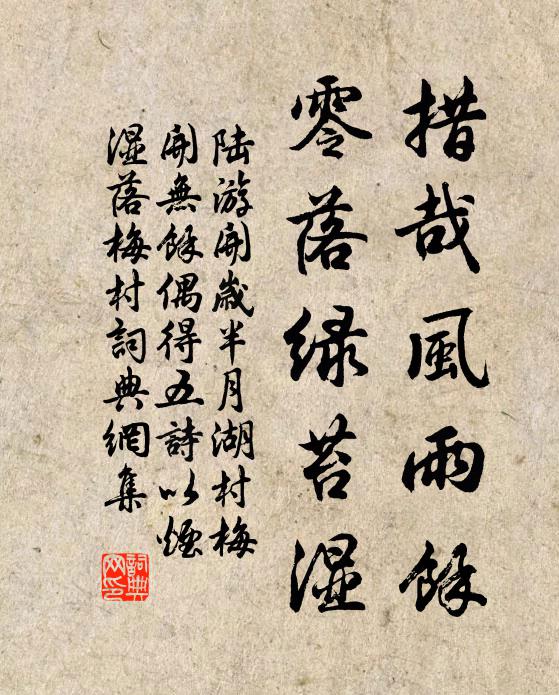 措哉風雨餘
零落緑苔湿
陸游開歲半月湖村梅
開無餘偶得五詩以煙
湿落梅村詞典網集
詞典网印